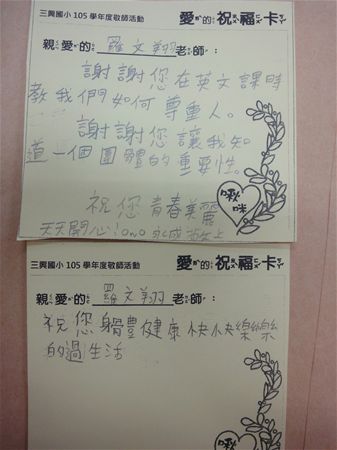 三興國小 105 學年度敬師活動 愛的祝福卡
親愛的 羅文翔 老師：
謝謝您在英文課時
教我們如何尊重人。
謝謝您讓我知
道一個團體的重要性。
祝您青春美麗
天天開心！OwO
啾咪
三興國小 105 學年度敬師活動 愛的祝福卡
親愛的 羅文翔 老師：
祝您身體健康 快快樂樂
的過生活
啾